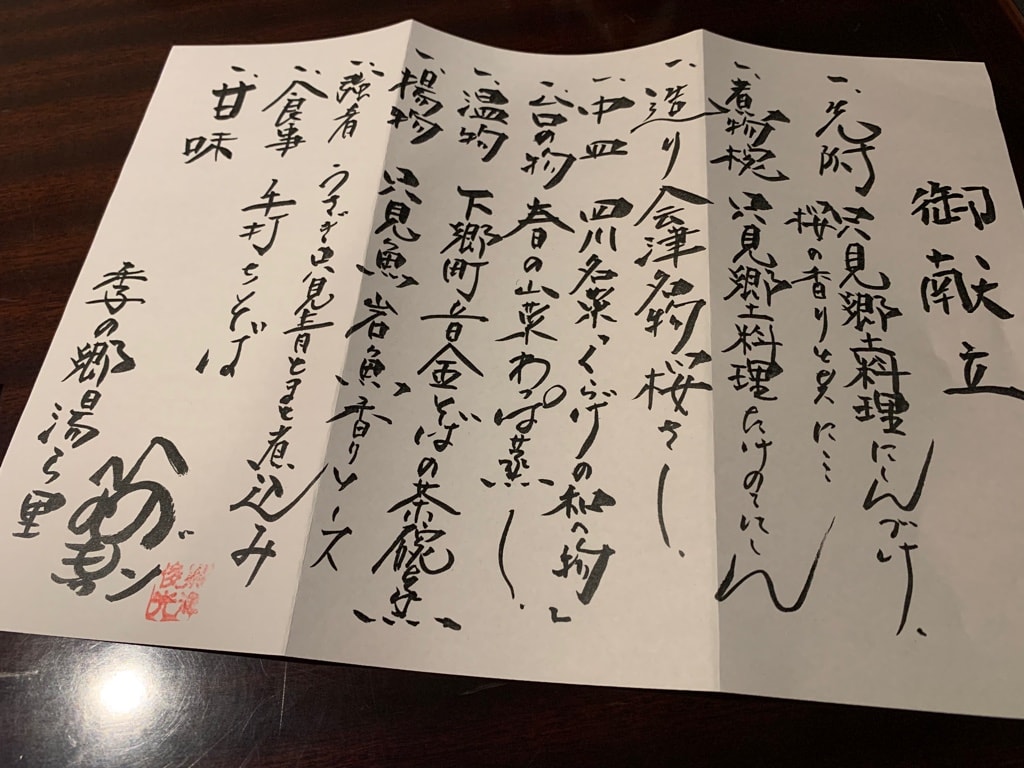 御献立
一、先附 只見郷土料理にしんづけ、
桜の香りと共に…
一、煮物椀 只見郷土料理たけのこにしん
一、造り 会津名物桜さし、
一、中皿 四川名菜くらげの和へ物
一、台の物 春の山菜わっぱ蒸し、
一、温物 下郷町 金そばの茶碗蒸
一、揚物 只見魚 岩魚 香りソース
一、強肴 うさぎ 煮込み
一、食事 手打ちそば
一、甘味
季の郷 湯ら里